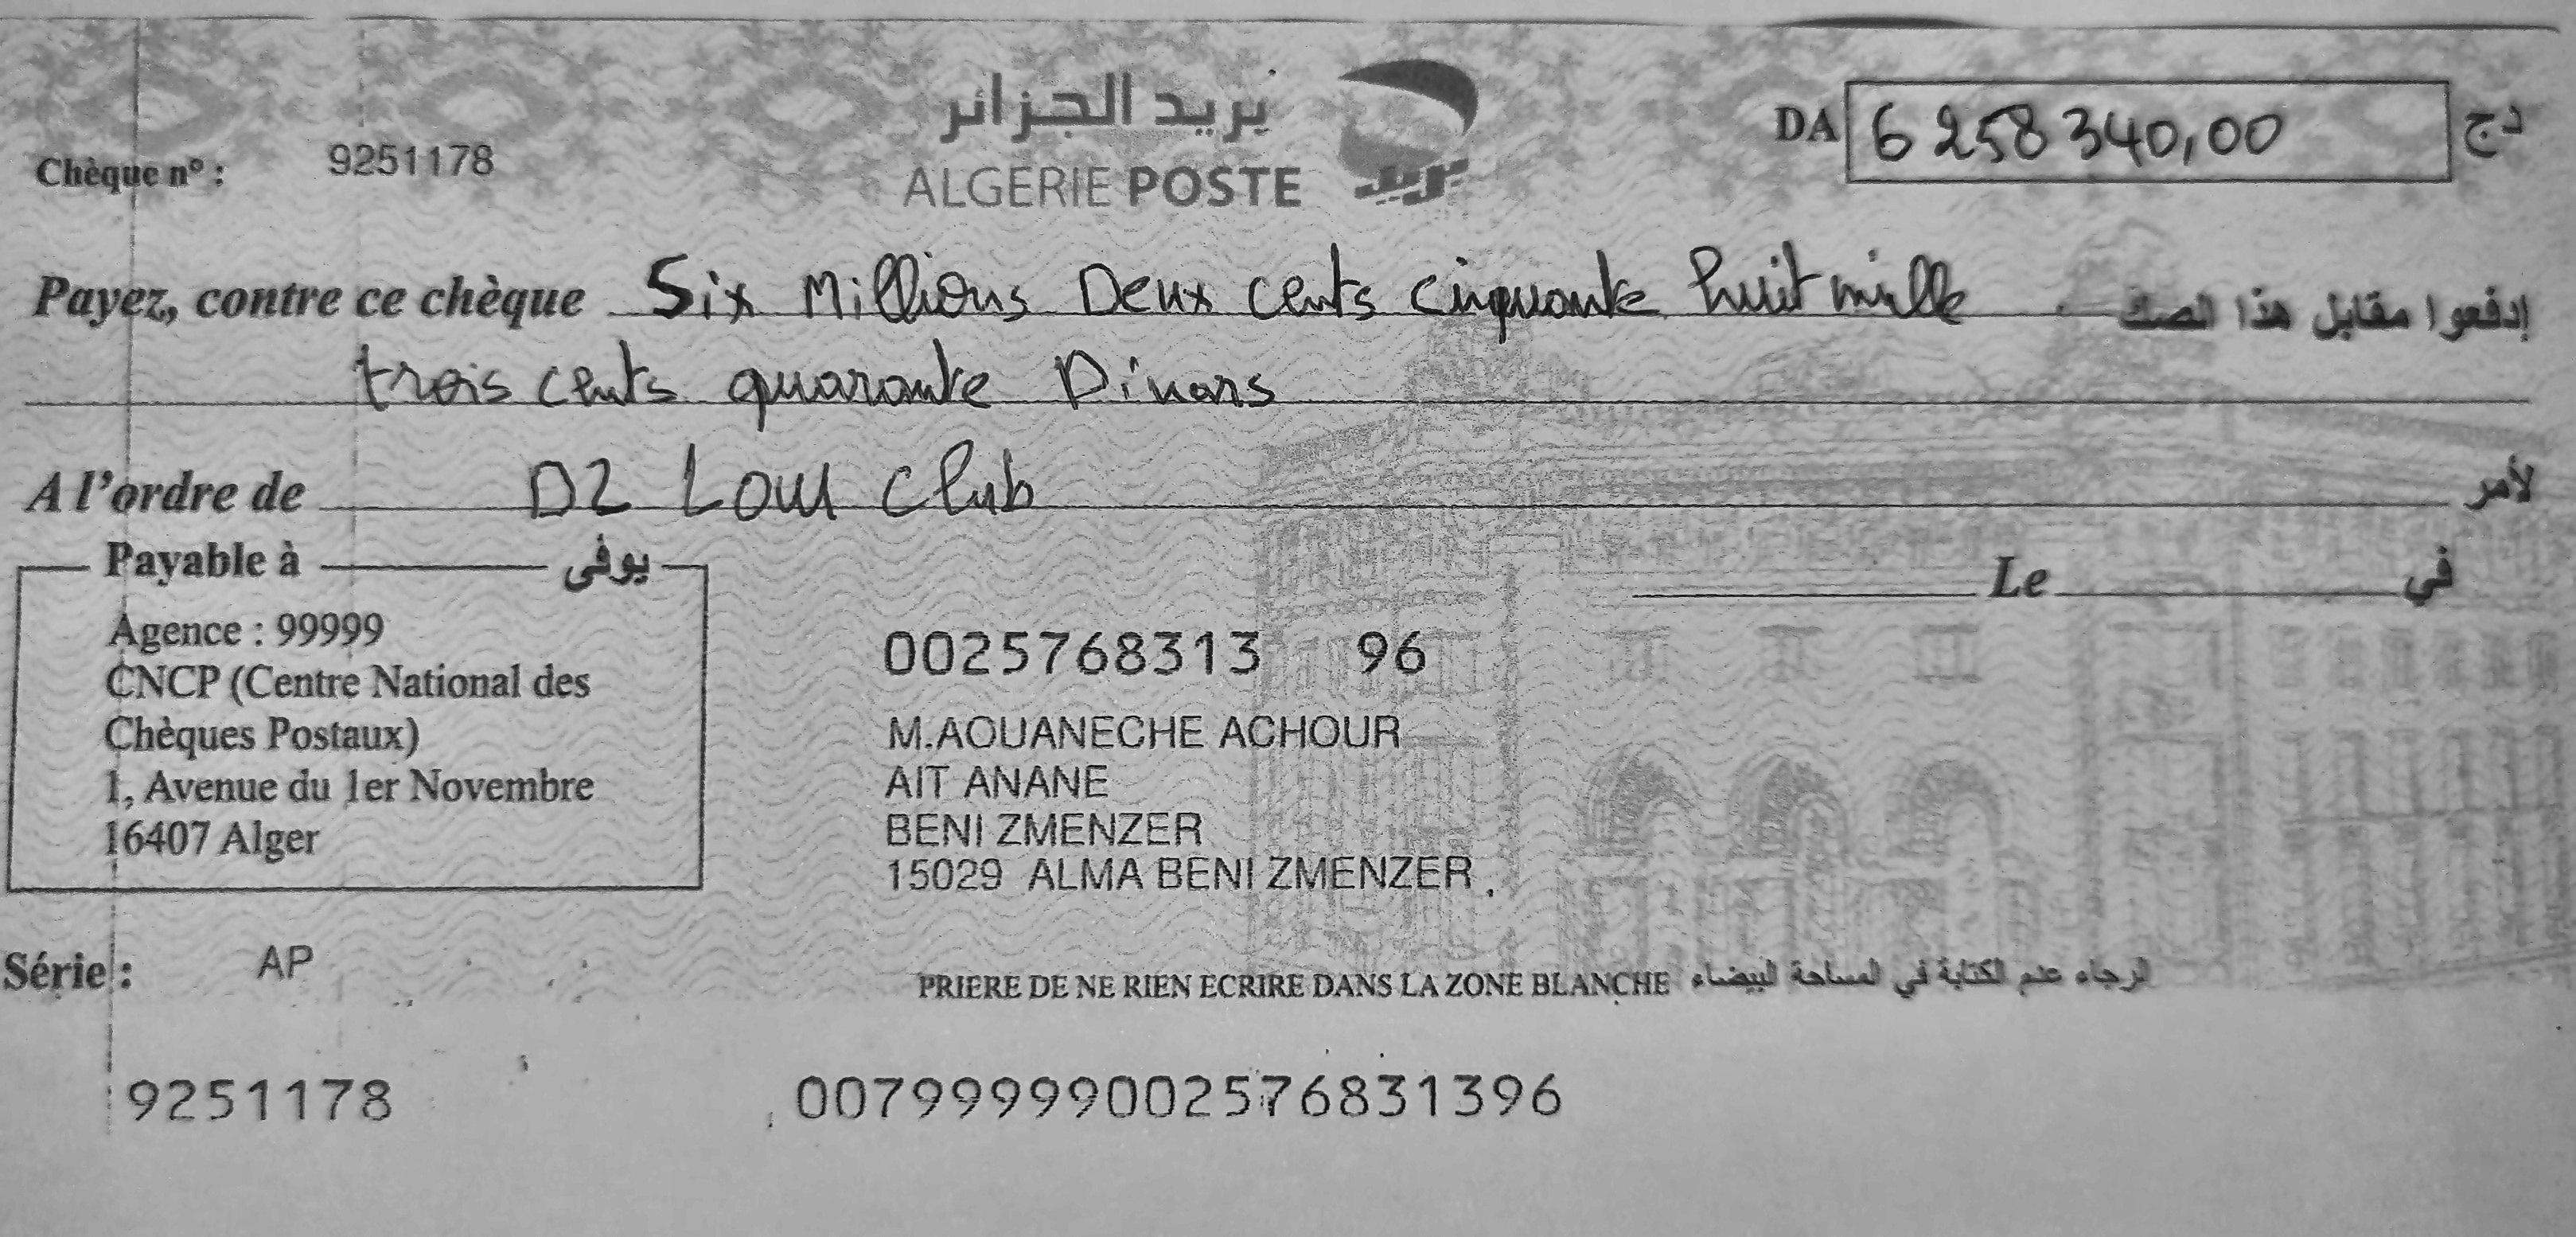 بريد الجزائر
ALGERIE POSTE
بريد
Chèque n° : 9251178
DA 6 258 340,00 دج
Payez, contre ce chèque Six Millions Deux cents cinquante huit mille إدفعوا مقابل هذا الصك
trois cents quarante Dinars
A l'ordre de DZ Low Club لأمر
Payable à يوفى
Agence : 99999
CNCP (Centre National des
Chèques Postaux)
1, Avenue du 1er Novembre
16407 Alger
Le في
0025768313 96
M.AOUANECHE ACHOUR
AIT ANANE
BENI ZMENZER
15029 ALMA BENI ZMENZER
Série : AP
PRIERE DE NE RIEN ECRIRE DANS LA ZONE BLANCHE الرجاء عدم الكتابة في المساحة البيضاء
9251178 00799999002576831396